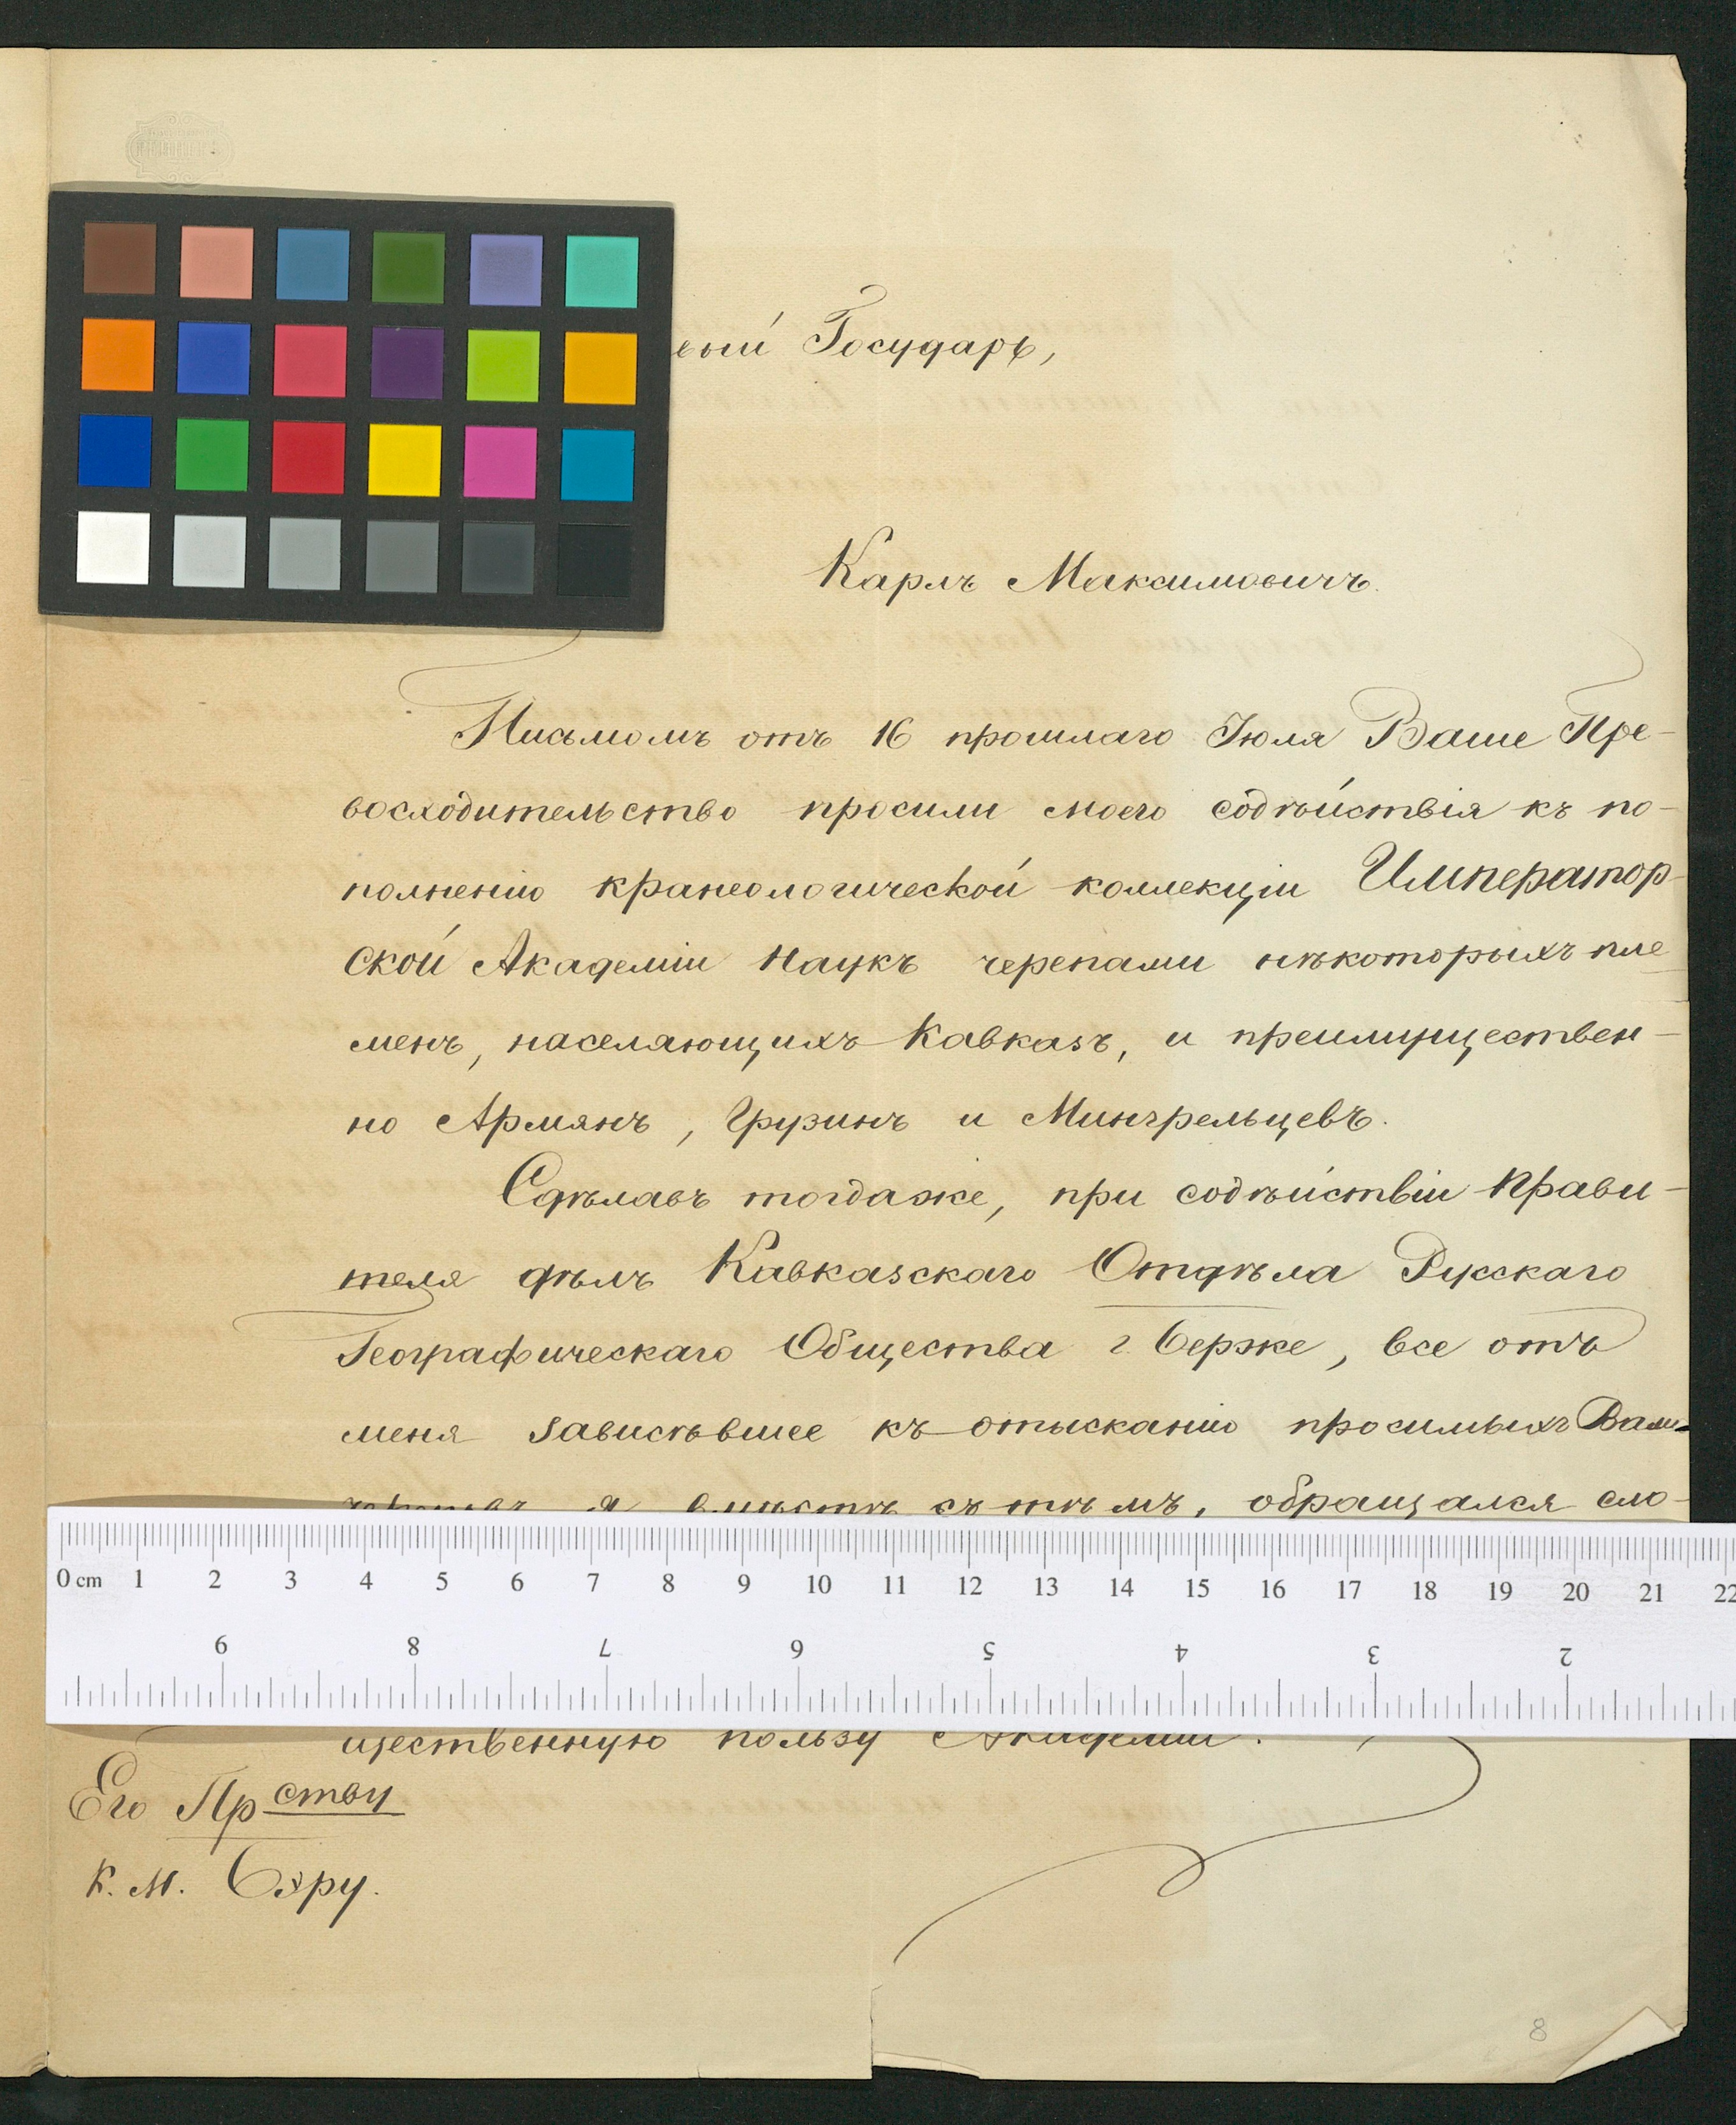 Государь,
Карлъ Максимовичъ.
Письмомъ отъ 16 прошлаго Іюля Ваше Пре-
восходительство просили моего содѣйствія къ по-
полненію кранеологической коллекціи Император-
ской Академіи Наукъ черепами нѣкоторыхъ пле
менъ, населяющихъ Кавказъ, и преимуществен-
но Армянъ, Грузинъ и Мингрельцевъ.
Сдѣлавъ тогдаже, при содѣйствіи Прави-
теля дѣлъ Кавказскаго Отдѣла Русскаго
Географическаго Общества г. Берже, все отъ
меня зависѣвшее къ отысканію просимыхъ Вами
я вмѣстѣ съ тѣмъ, обращался сло-
0 cm 1 2 3 4 5 6 7 8 9 10 11 12 13 14 15 16 17 18 19 20 21 22
9 8 7 6 5 4 3 2
щественную пользу Академіи.
Его Прству
К. М. Бэру.
8